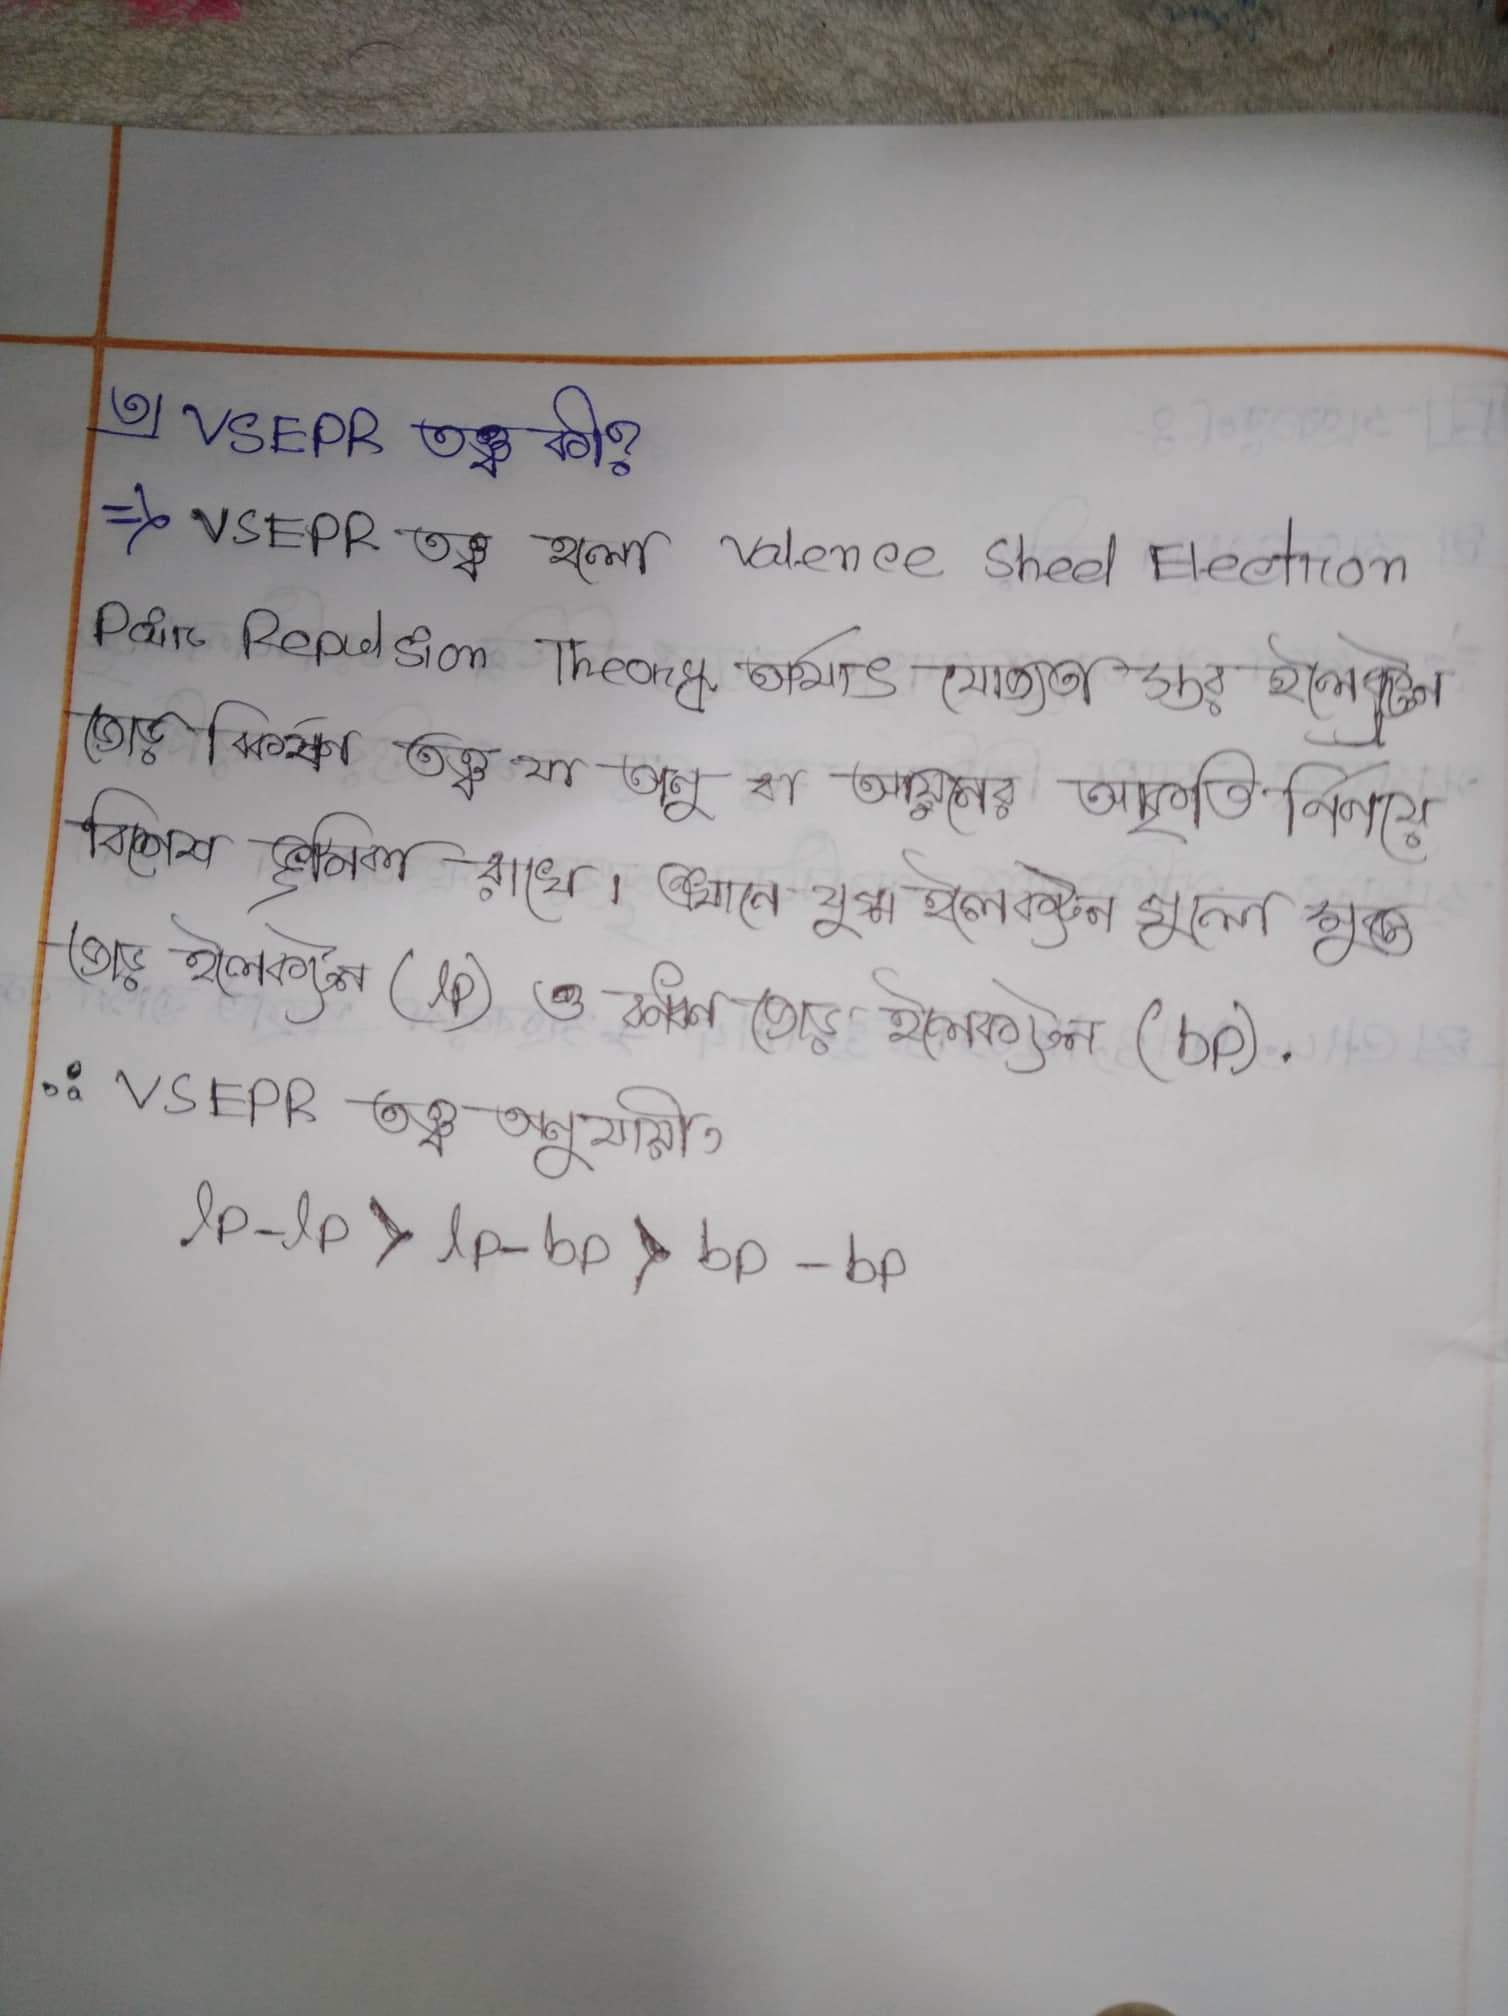 ৩। VSEPR তত্ত্ব কী?
⇒ VSEPR তত্ত্ব হলো Valence Shell Electron
Pair Repulsion Theory অর্থাৎ যোজ্যতা স্তর ইলেকট্রন
জোড় বিকর্ষণ তত্ত্ব যা অনু বা আয়নের আকৃতি নির্নয়ে
বিশেষ ভূমিকা রাখে। এখানে যুগ্ম ইলেকট্রন মুলো মুক্ত
জোড় ইলেকট্রন (lp) ও বন্ধন জোড় ইলেকট্রন (bp).
∴ VSEPR তত্ত্ব অনুযায়ী,
lp-lp > lp-bp > bp - bp